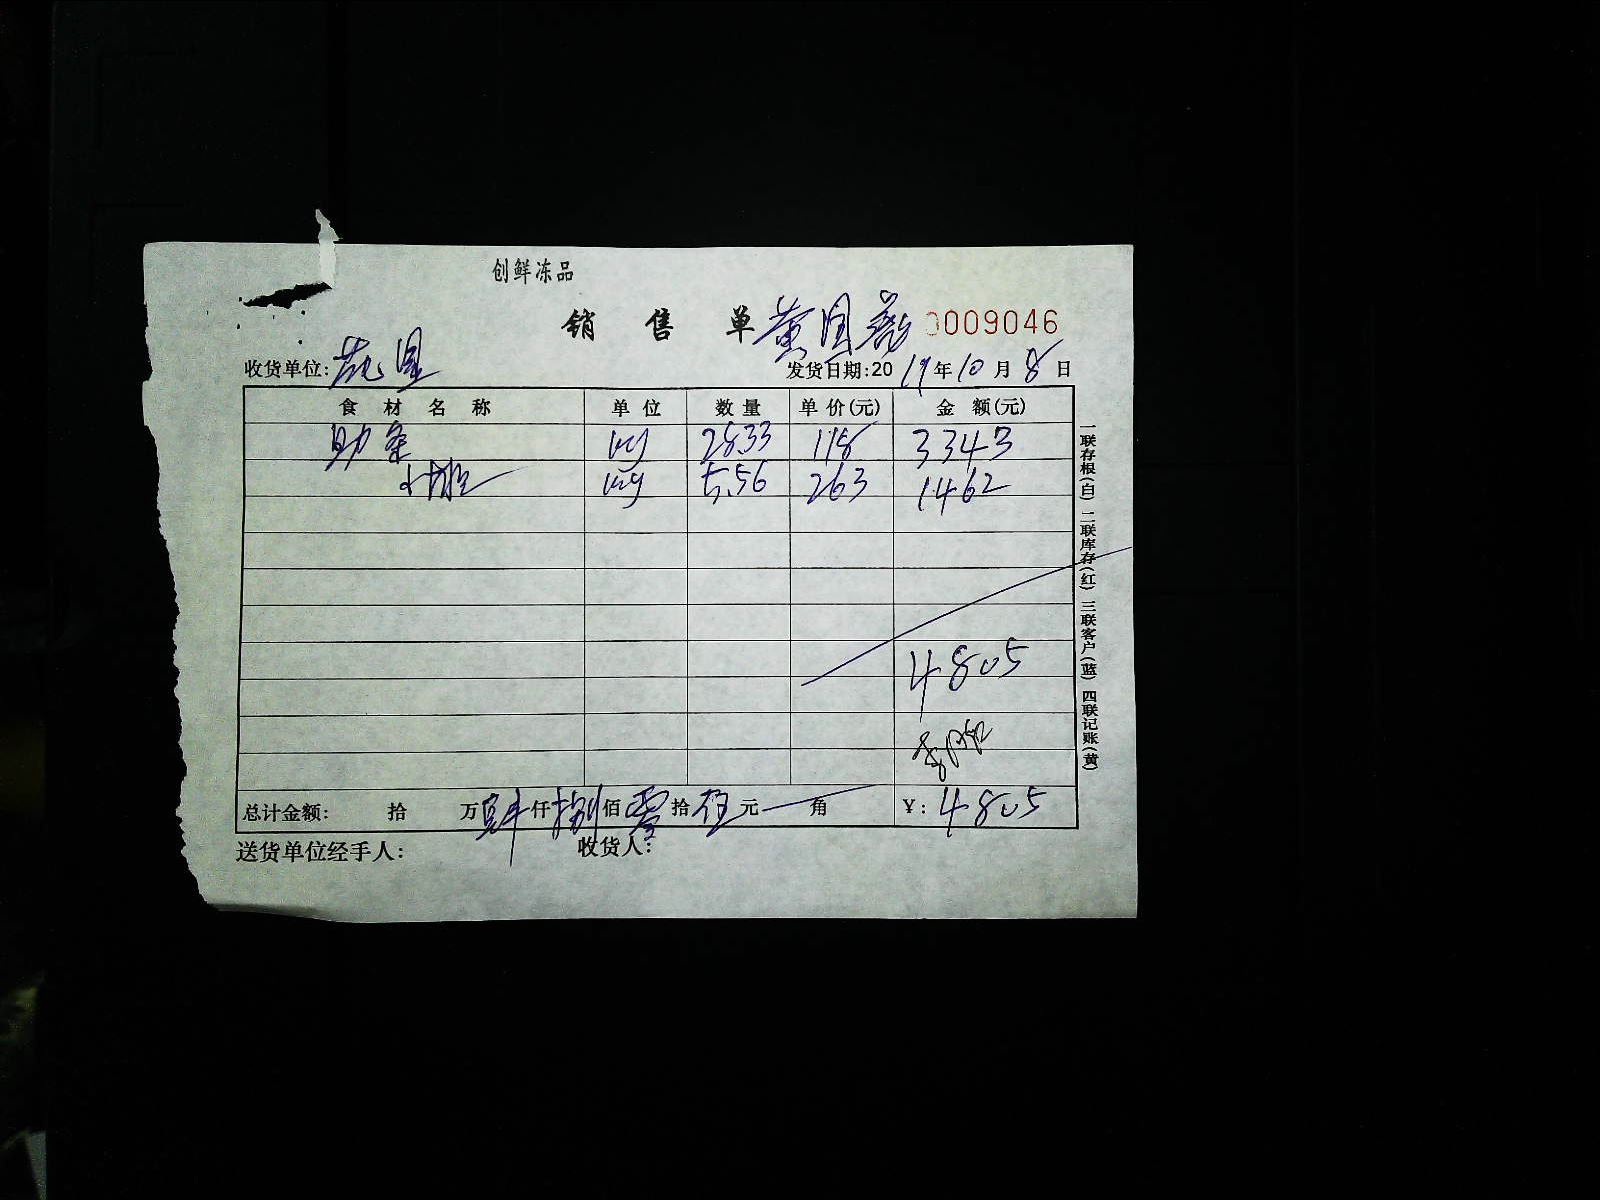 创鲜冻品
销售单 0009046
收货单位: 发货日期:2019年10月8日
食材名称 单位 数量 单价(元) 金额(元)
助条 kg 28.33 118 3343
kg 5.56 263 1462
4805
总计金额: 拾 万肆仟捌佰零拾伍元 角 ¥: 4805
送货单位经手人: 收货人:
一联存根(白) 二联库存(红) 三联客户(蓝) 四联记账(黄)